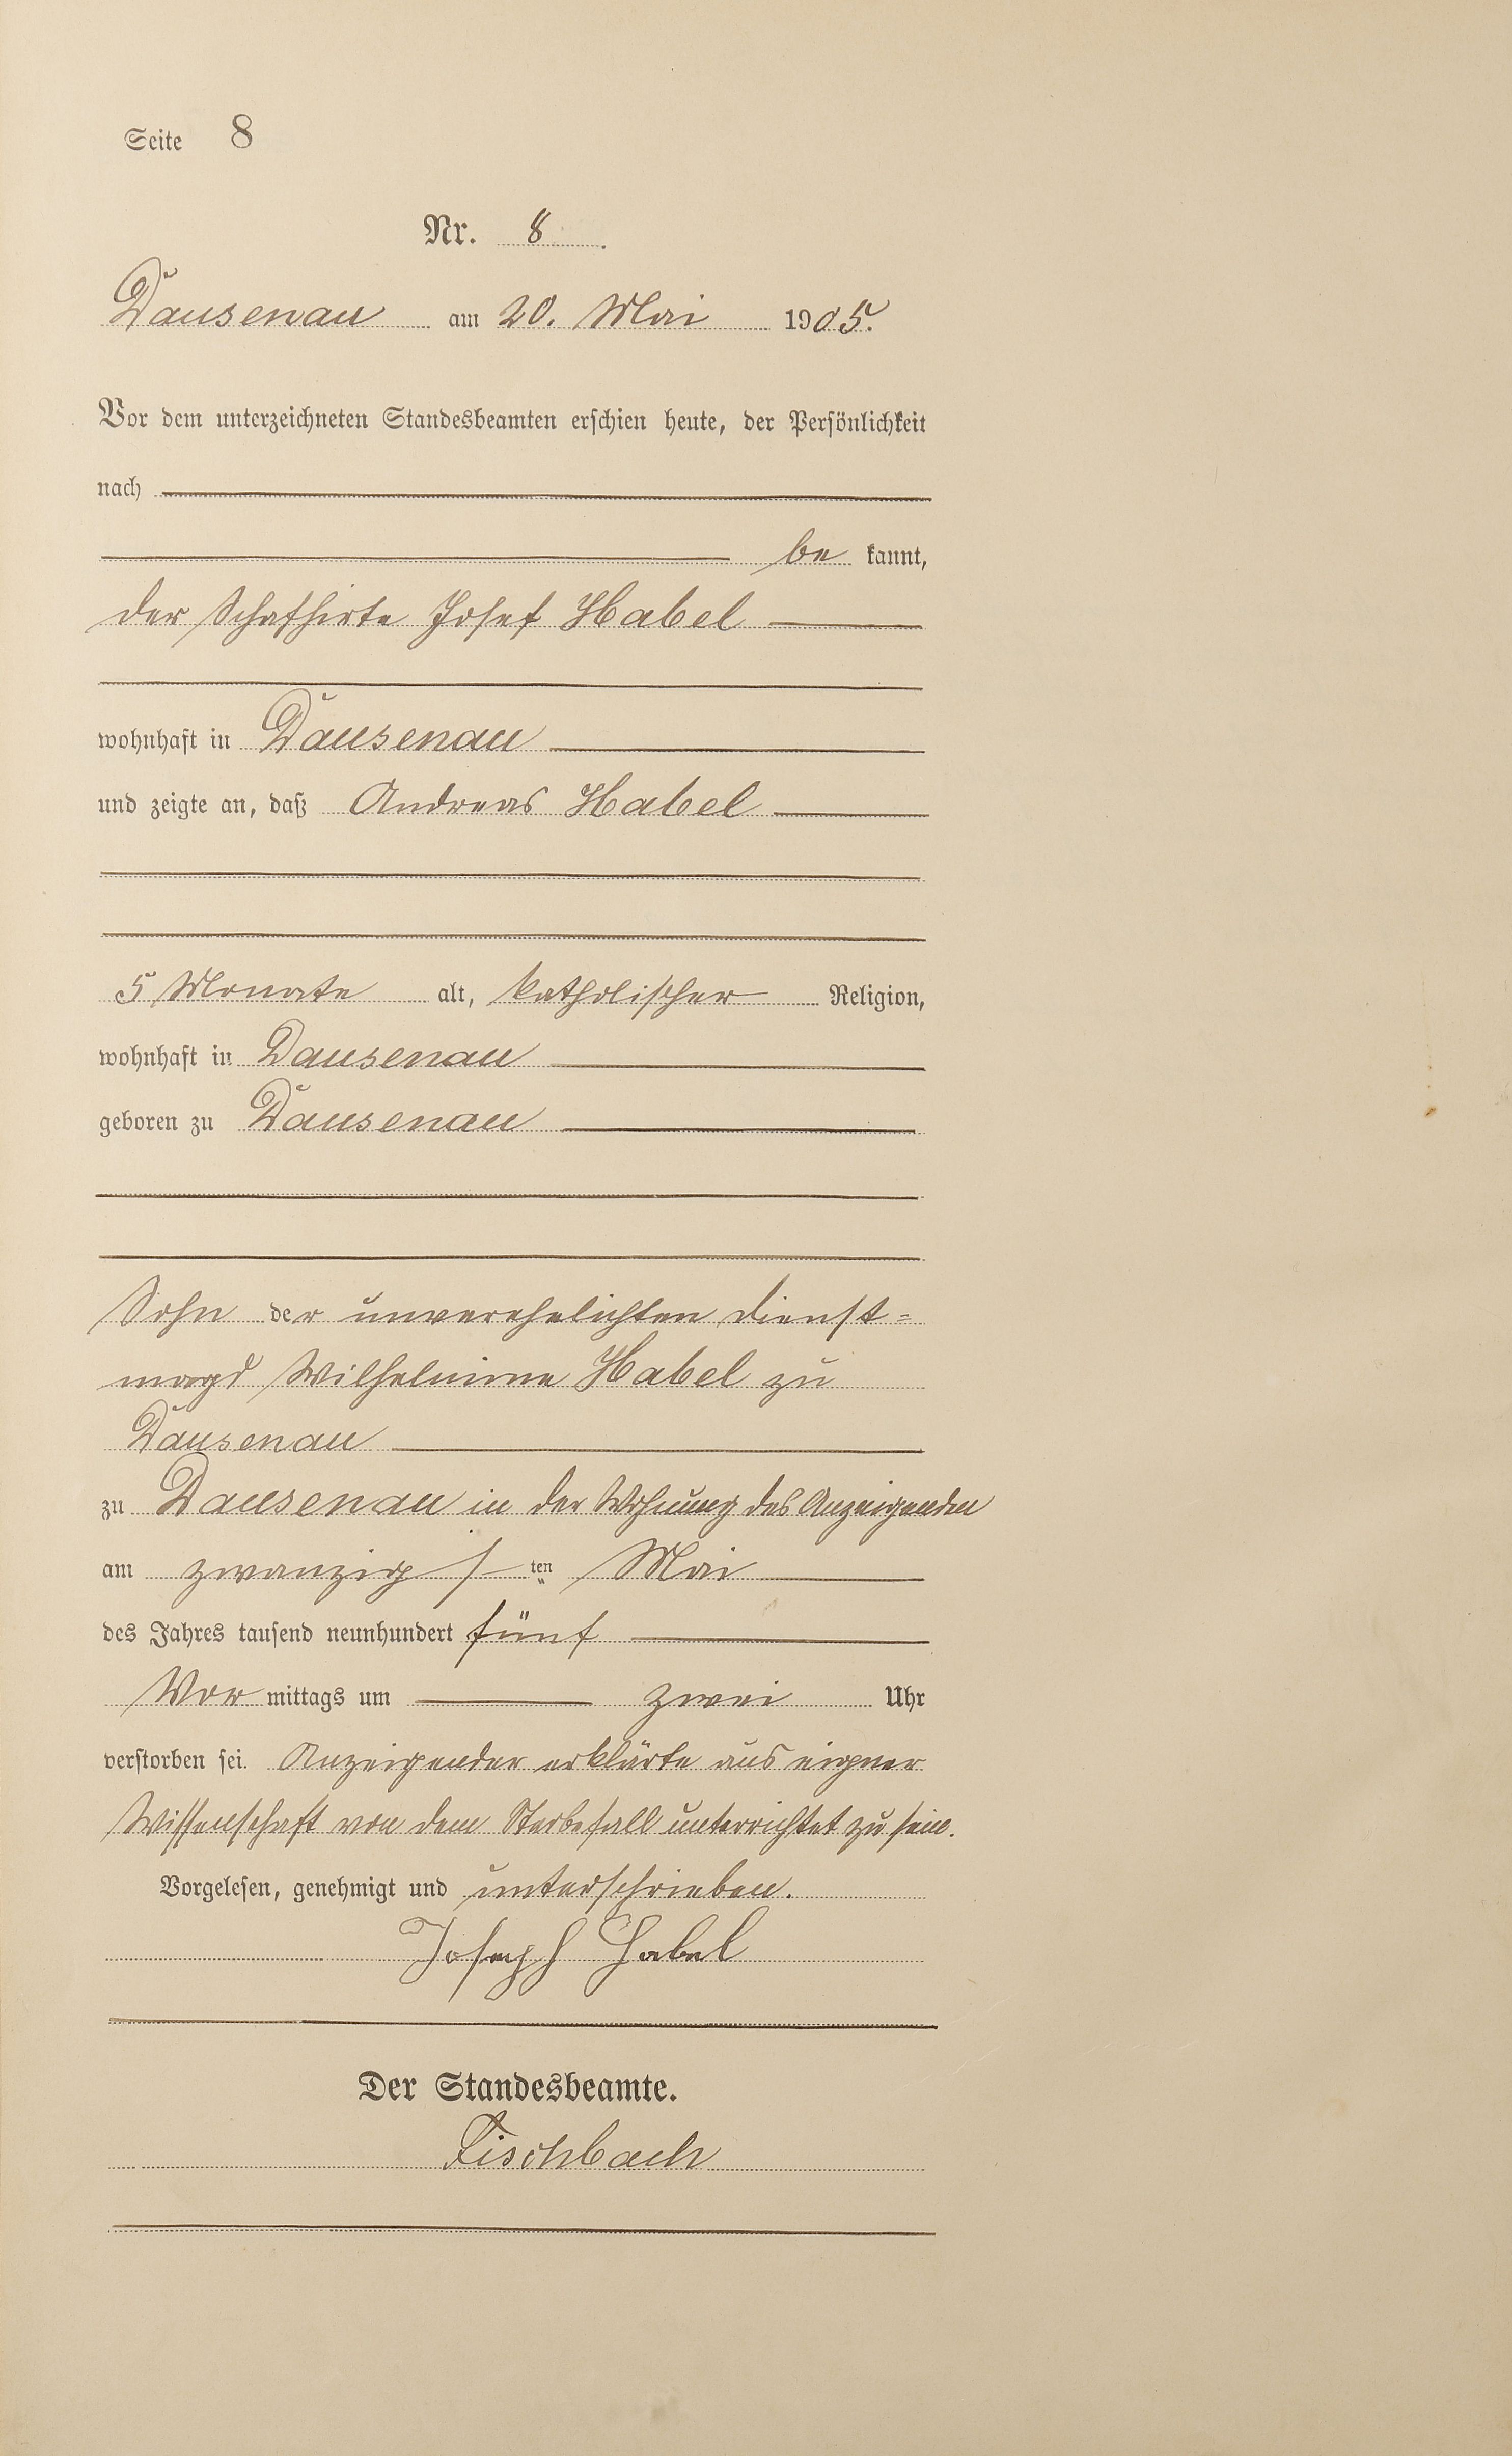 Seite 8
Nr. 8.
Dausenau am 20. Mai 1905.
Vor dem unterzeichneten Standesbeamten erschien heute, der Persönlichkeit
nach
be kannt,
der Schafhirte Josef Habel
wohnhaft in Dausenau
und zeigte an, daß Andreas Habel
5 Monate alt, katholischer Religion,
wohnhaft in Dausenau
geboren zu Dausenau
Sohn der unverehelichten Dienst=
magd Wilhelmine Habel zu
Dausenau
zu Dausenau in der Wohnung des Anzeigenden
am zwanzigsten Mai
des Jahres tausend neunhundert fünf
Vor mittags um zwei Uhr
verstorben sei. Anzeigender erklärte aus eigner
Wissenschaft von dem Sterbefall unterrichtet zu sein.
Vorgelesen, genehmigt und unterschrieben.
Joseph Habel
Der Standesbeamte.
Fischbach